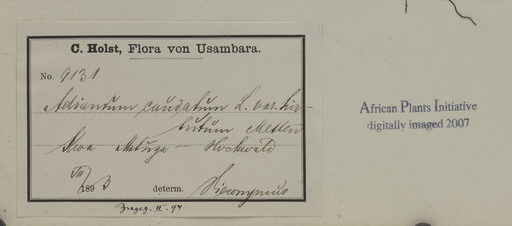 C. Holst, Flora von Usambara.
No. 9131
Adiantum caudatum L. var. hir-
sutum Metten
Kwa Mshuza — Hochwald
VIII 1893 determ. Hieronymus
II. 94.
African Plants Initiative
digitally imaged 2007